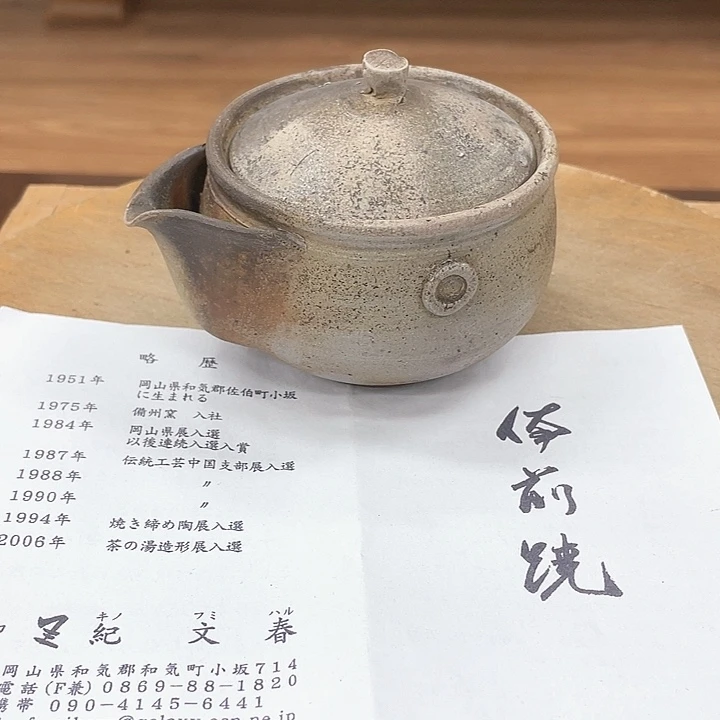 略 歴
1951年 岡山県和気郡佐伯町小坂
に生まれる
1975年 備州窯 入社
1984年 岡山県展入選
以後連続入選入賞
1987年 伝統工芸中国支部展入選
1988年 〃
1990年 〃
1994年 焼き締め陶展入選
2006年 茶の湯造形展入選
キノ フミ ハル
紀 文 春
岡山県和気郡和気町小坂714
電話(F兼) 0869-88-1820
携帯 090-4145-6441
備前焼